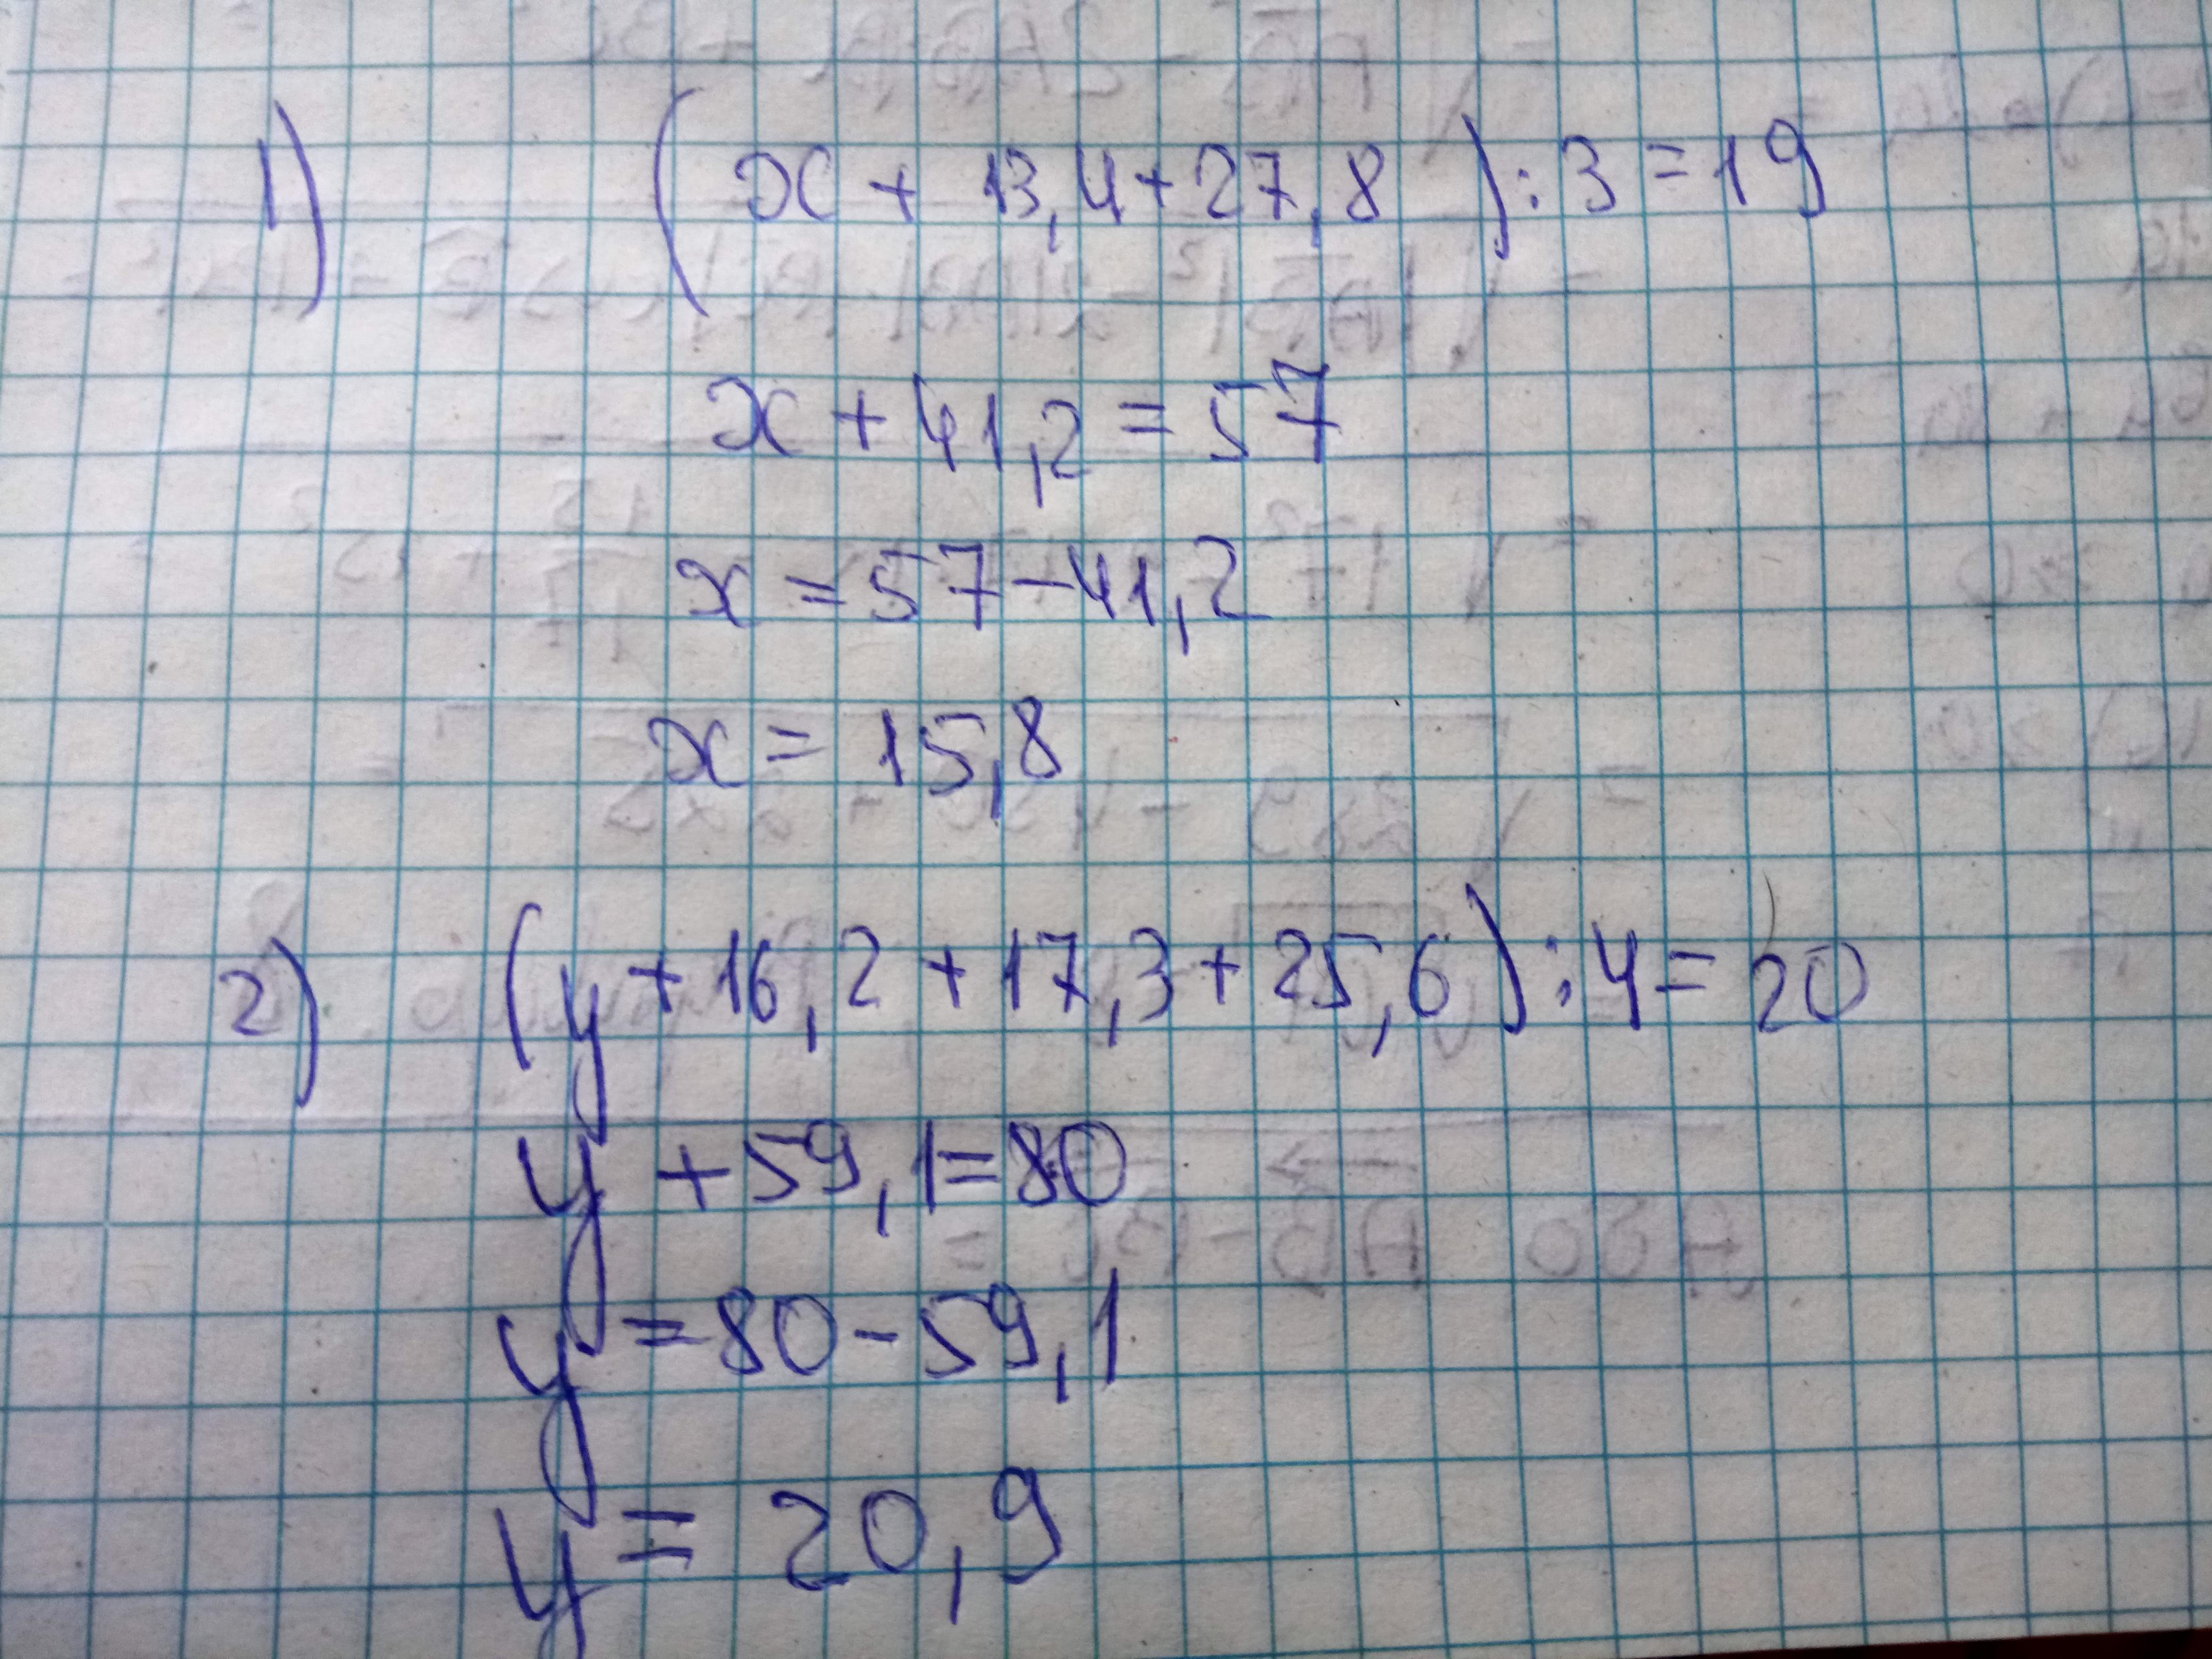 1) (x + 13,4 + 27,8) : 3 = 19
x + 41,2 = 57
x = 57 - 41,2
x = 15,8
2) (y + 16,2 + 17,3 + 25,6) : 4 = 20
y + 59,1 = 80
y = 80 - 59,1
y = 20,9